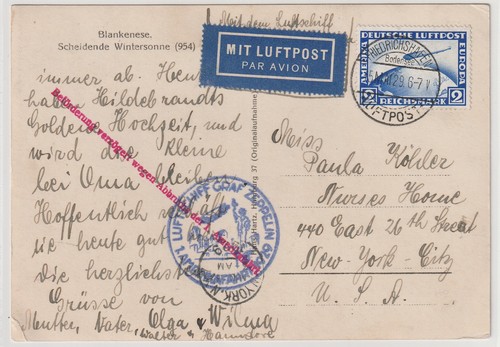 Blankenese.
Scheidende Wintersonne (954)
Mit dem Luftschiff
MIT LUFTPOST
PAR AVION
DEUTSCHE LUFTPOST
AMERIKA
EUROPA
2 REICHSMARK 2
FRIEDRICHSHAFEN
Bodensee
LUFTPOST
immer ab. Heute
haben Hildebrandts
Goldene Hochzeit, und
wird die Kleine
bei Oma bleiben
Hoffentlich
sie heute gut
die herzlichsten
Grüsse von
Mutter, Vater, Olga & Wilma
Walter & Hannelore
Beförderung verzögert wegen Abbruchs der 1. Amerikafahrt
LUFTSCHIFF GRAF ZEPPELIN
1. AMERIKAFAHRT 1929
NEW YORK, N.Y.
AM
Hamburg 37 (Originalaufnahme)
Miss
Paula Köhler
Nurses Home
440 East 26th Street
New-York-City
U. S. A.